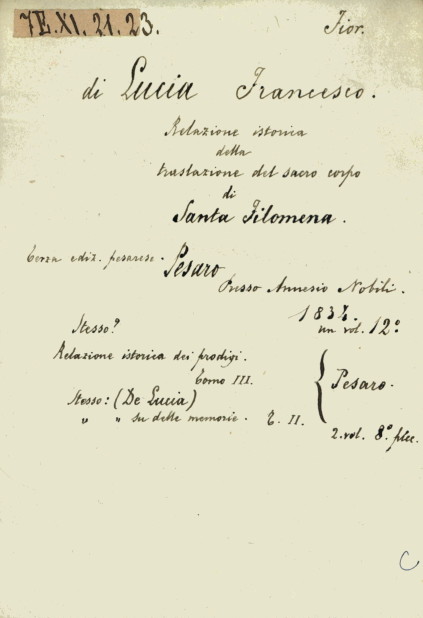 7E.XI.21.23.
Fior.
di Lucia Francesco.
Relazione istorica
della
traslazione del sacro corpo
di
Santa Filomena.
terza ediz. pesarese. Pesaro
Presso Annesio Nobili.
un vol. 12º
Stesso?
Relazione istorica dei prodigi.
Tomo III.
Pesaro.
Stesso: (De Lucia)
" " su dette memorie. T. II.
2. vol. 8.º picc.
C